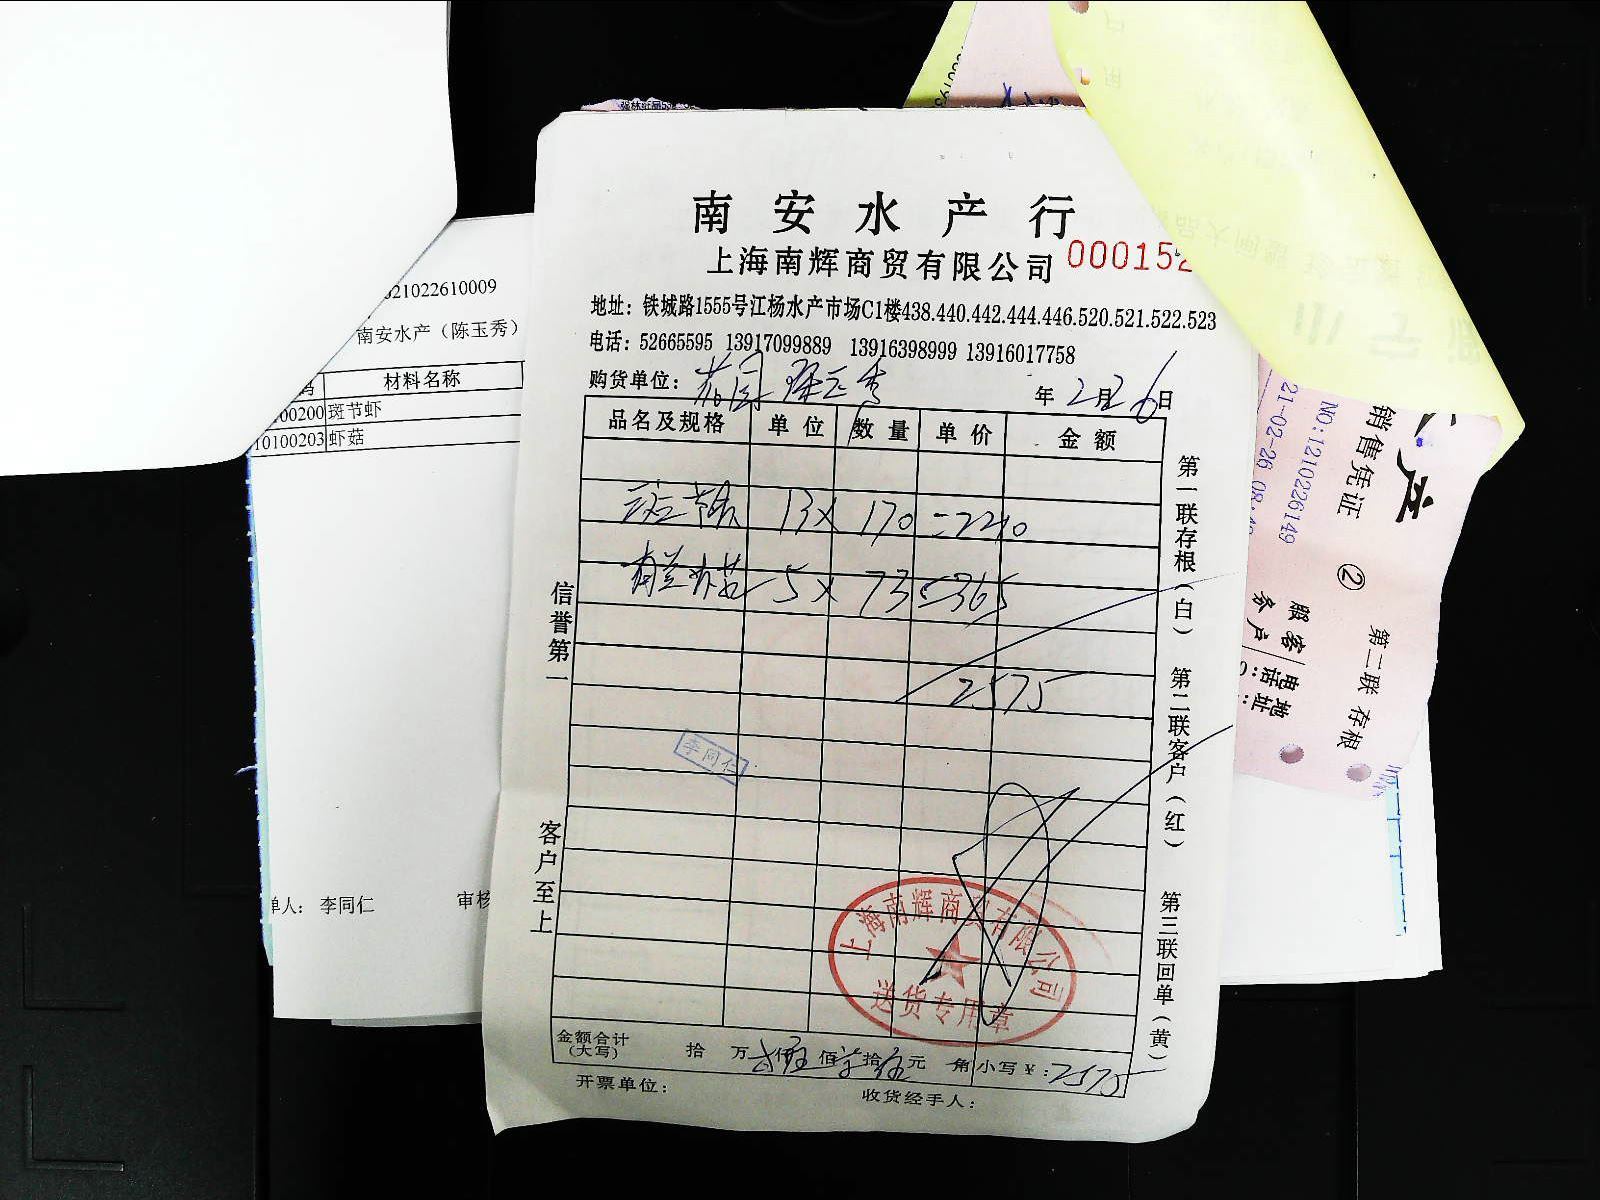 南安水产行
上海南辉商贸有限公司 000152
地址：铁城路1555号江杨水产市场C1楼438.440.442.444.446.520.521.522.523
电话：52665595 13917099889 13916398999 13916017758
购货单位： 陈玉秀 年 2月26日
品名及规格 单位 数量 单价 金额
斑节虾 13 x 170 =2210
5 x 73 =365
2575
李同仁
上海南辉商贸有限公司
送货专用章
金额合计(大写) 拾 万 贰仟伍佰柒拾伍元 角 小写￥：2575
开票单位： 收货经手人：
信誉第一
客户至上
第一联存根（白） 第二联客户（红） 第三联回单（黄）
21022610009
南安水产（陈玉秀）
码 材料名称
00200 斑节虾
10100203 虾菇
单人： 李同仁 审核
产
销售凭证 ② 第二联 存根
NO:1210226149
21-02-26 08:
客户
服务
电话：
地址：